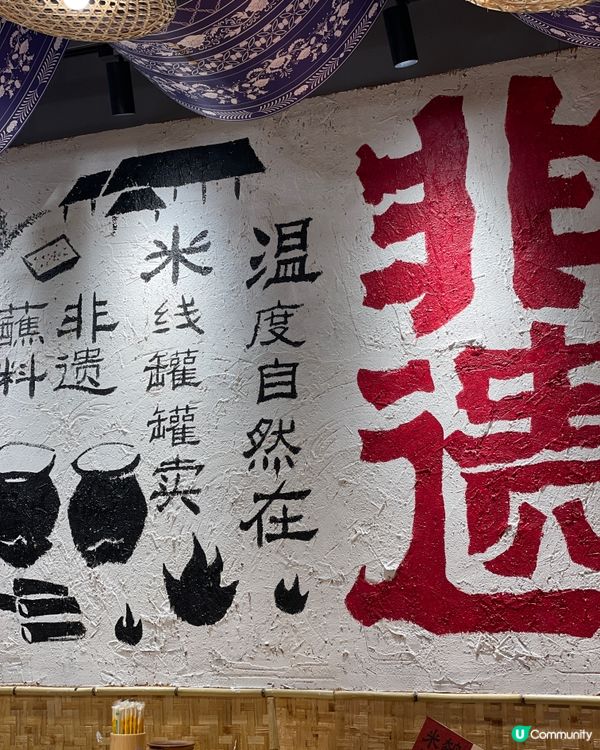 非遗
温度自然在
米线罐罐卖
非遗
蘸料
米线
U Community